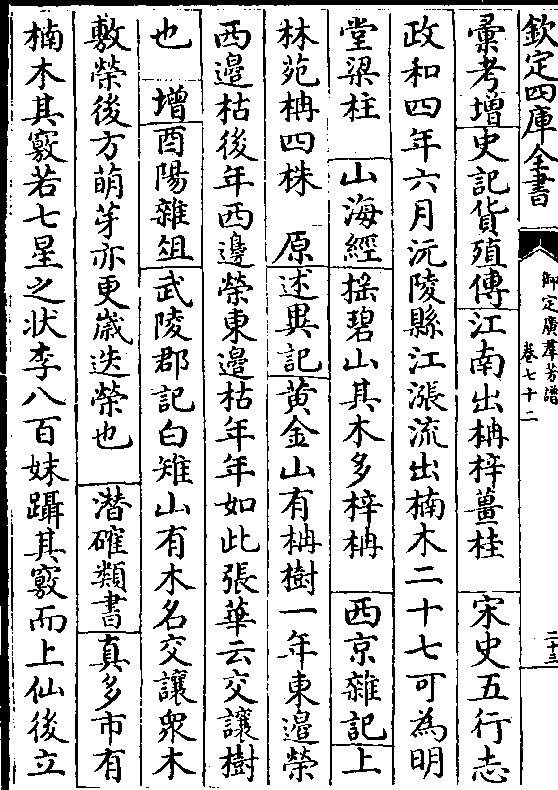 欽定四庫全書
御定廣羣芳譜
卷七十二
二十三
彚考增史記貨殖傳江南出枏梓薑桂　宋史五行志
政和四年六月沅陵縣江漲流出楠木二十七可為明
堂梁柱　山海經揺碧山其木多梓枏　西京雜記上
林苑枏四株　原述異記黄金山有枏樹一年東邉榮
西邉枯後年西邉榮東邉枯年年如此張華云交讓樹
也　增酉陽雜俎武陵郡記白雉山有木名交讓衆木
敷榮後方萌芽亦更嵗迭榮也　潛確類書真多市有
楠木其竅若七星之状李八百妹躡其竅而上仙後立